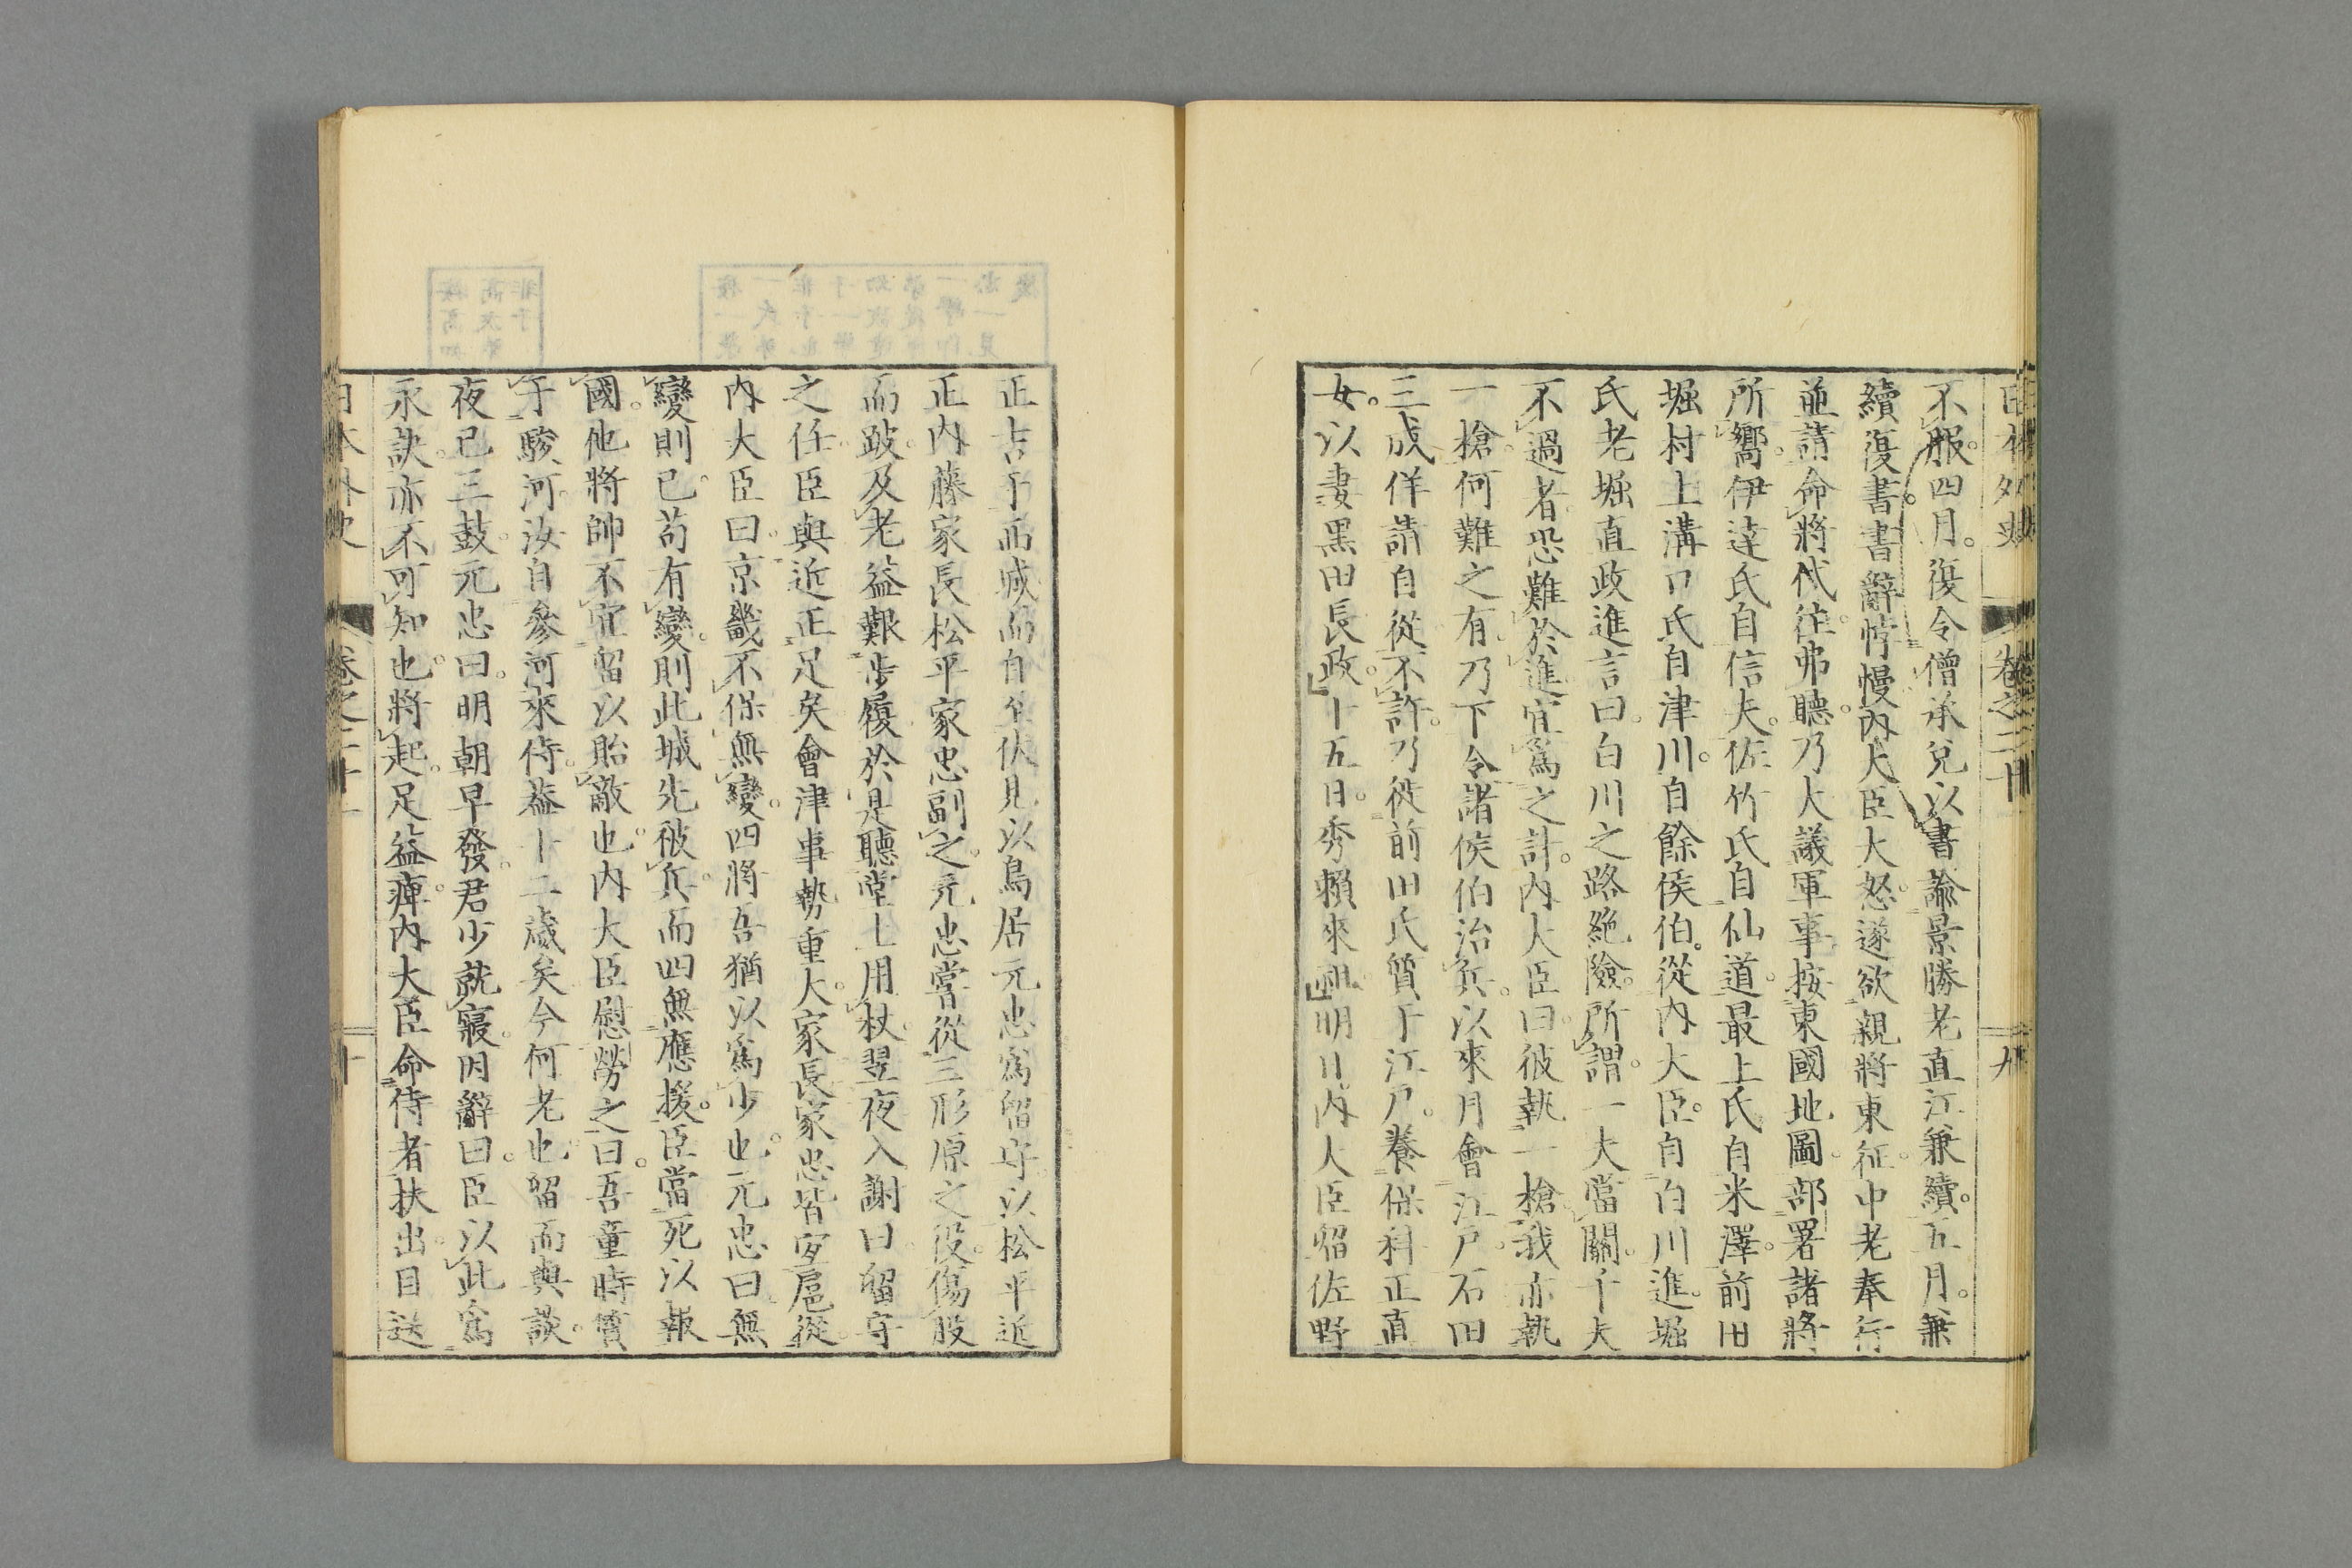 日本外史 卷之二十 九
不服。四月。復令僧承兌以書諭景勝老直江兼續。五月。兼
續復書。書辭悖慢。內大臣大怒。遂欲親將東征。中老奉行
並請命將代往。弗聽。乃大議軍事。按東國地圖。部署諸將
所嚮。伊達氏自信夫。佐竹氏自仙道。最上氏自米澤。前田
堀村上溝口氏自津川。自餘侯伯。從內大臣。自白川進。堀
氏老堀直政進言曰。白川之路絕險。所謂一夫當關。千夫
不過者。恐難於進。宜爲之計。內大臣曰。彼執一槍。我亦執
一槍。何難之有。乃下令諸侯伯治兵。以來月會江戶。石田
三成佯請自從。不許。乃徙前田氏質于江戶。養保科正直
女。以妻黑田長政。十五日。秀賴來。明日。內大臣留佐野
正吉于西城。而自至伏見。以鳥居元忠爲留守。以松平近
正內藤家長松平家忠副之。元忠嘗從三形原之役。傷股
而跛。及老益艱步履。於是聽堂上用杖。翌夜入謝曰。留守
之任。臣與近正足矣。會津事勢重大。家長家忠皆宜扈從。
內大臣曰。京畿不保無變。四將吾猶以爲少也。元忠曰。無
變則已。苟有變。則此城先被兵。而四無應援。臣當死以報
國。他將帥不宜留以貽敵也。內大臣慰勞之曰。吾童時質
于駿河。汝自參河來侍。蓋十二歲矣。今何老也。留而與談。
夜已三鼓。元忠曰。明朝早發。君少就寢。因辭曰。臣以此爲
永訣。亦不可知也。將起。足益痺。內大臣命侍者扶出。目送
日本外史 卷之二十 十